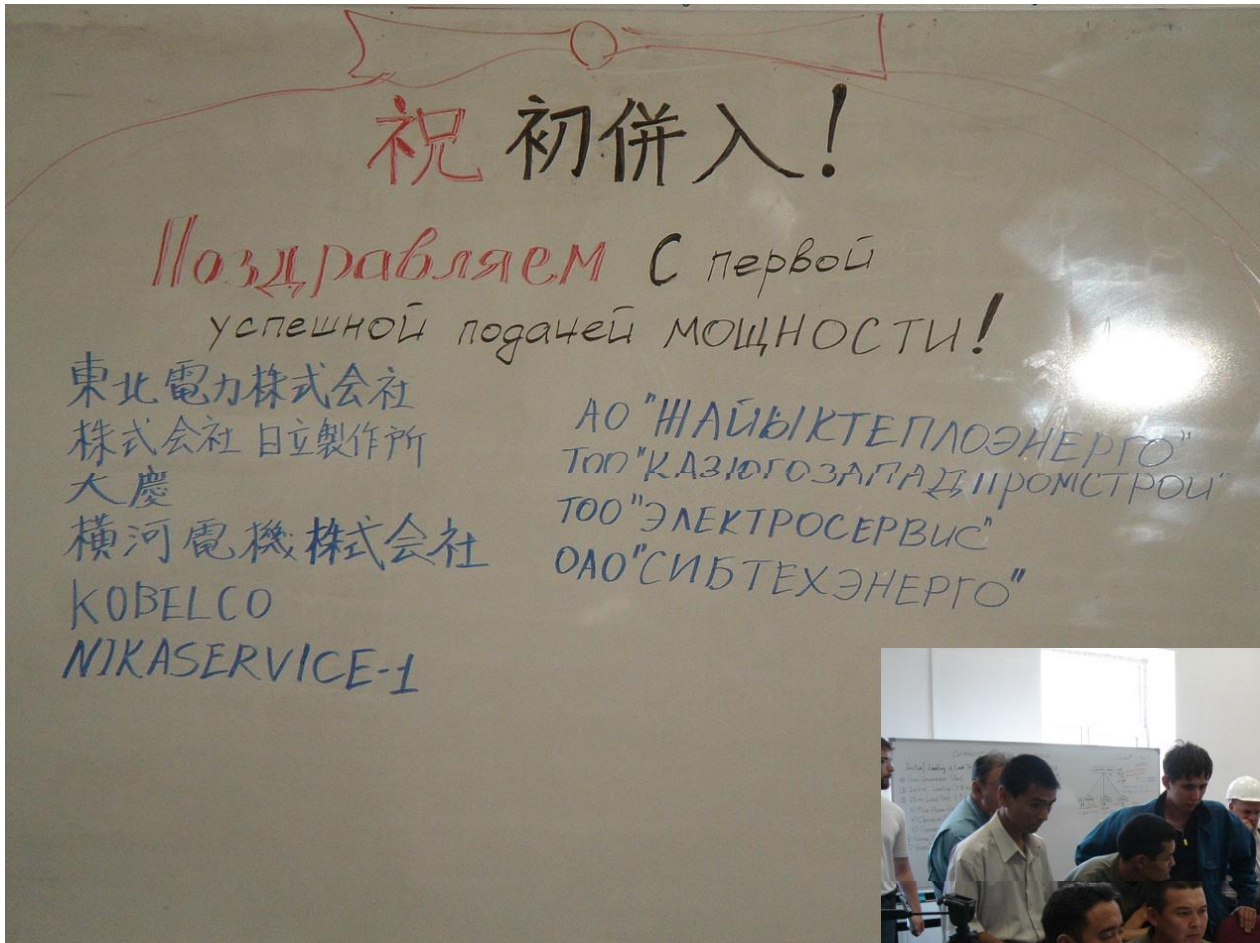 祝 初併入!
Поздравляем с первой
успешной подачей МОЩНОСТИ!
東北電力株式会社
株式会社 日立製作所
大慶
横河電機株式会社
KOBELCO
NIKASERVICE-1
АО "ЖАЙЫКТЕПЛОЭНЕРГО"
ТОП "КАЗЮГОЗАПАДПРОМСТРОЙ"
ТОО "ЭЛЕКТРОСЕРВИС"
ОАО "СИБТЕХЭНЕРГО"